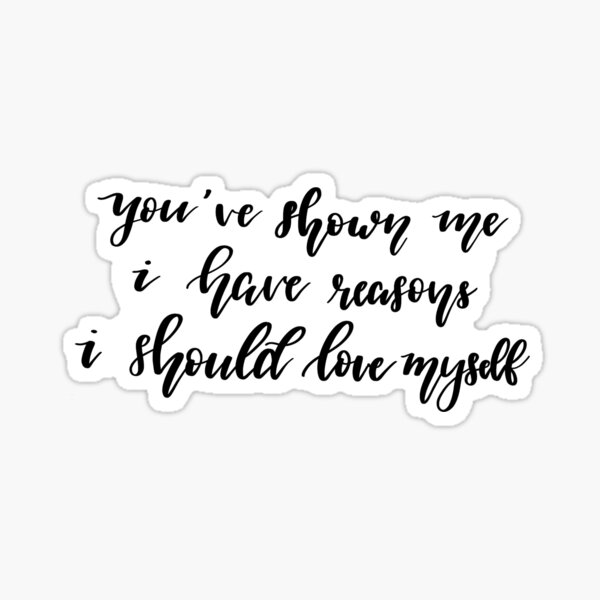 you've shown me
i have reasons
i should love myself